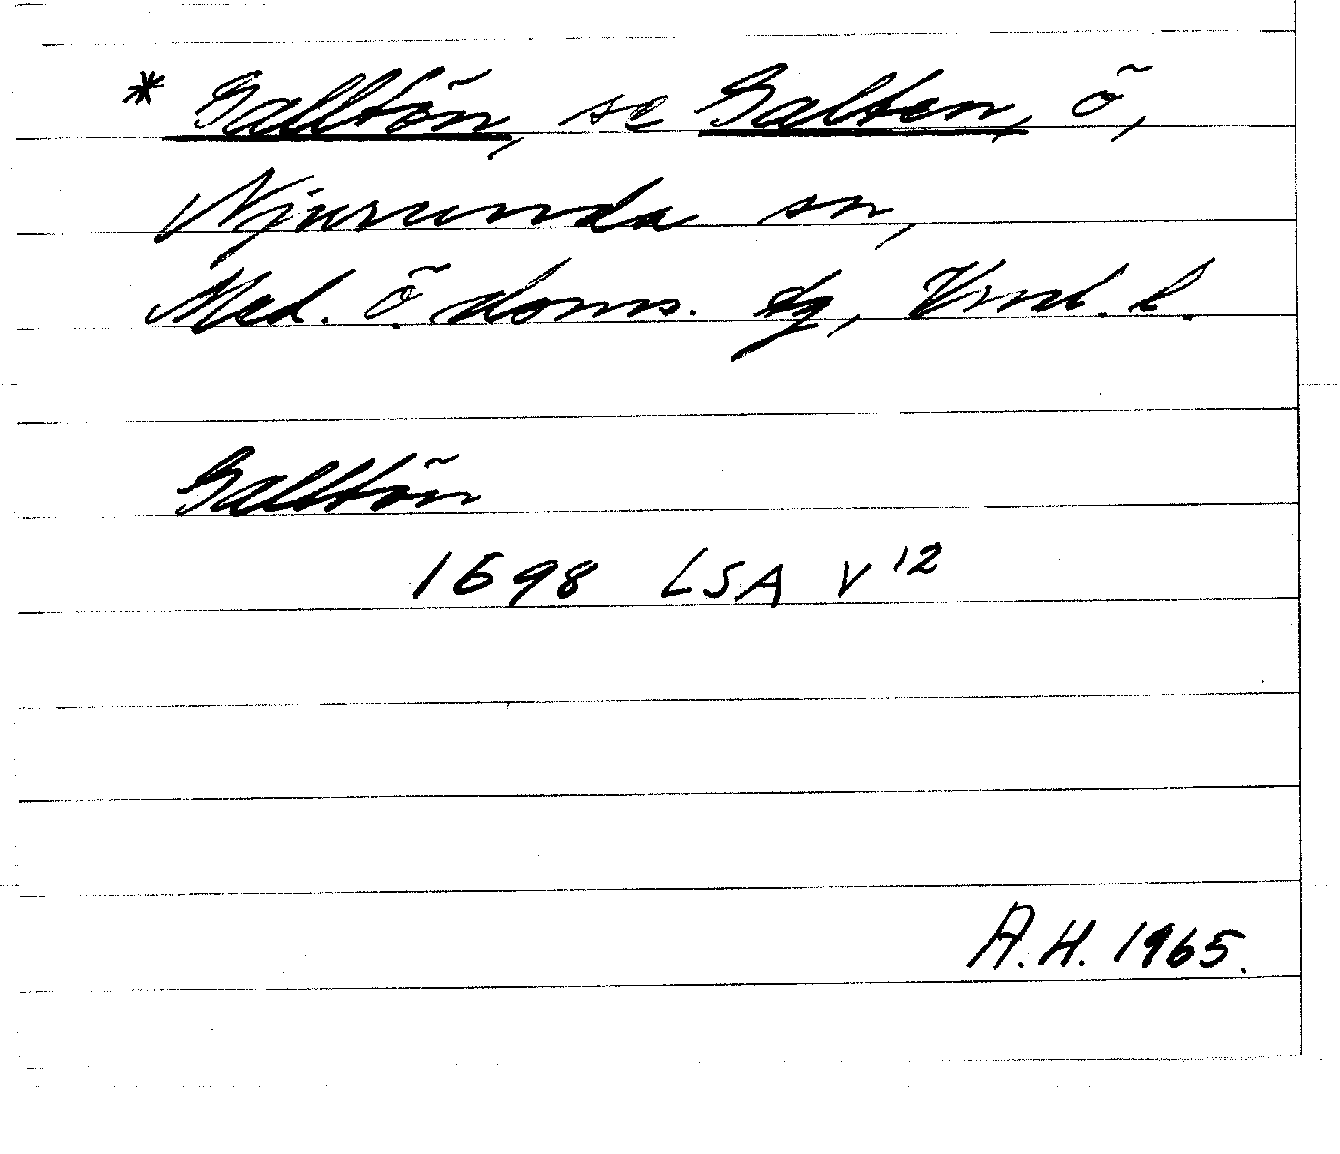 * Galltön, se Galten, ö,
Njurunda sn,
Med. ö. doms. dg, Vrnl. l.
Galltön
1698 LSA V 12
A.H. 1965.